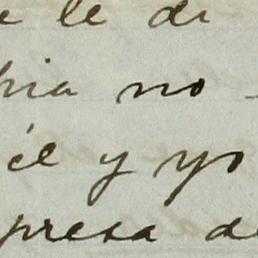 e le di
hia no
él y yo
presa de